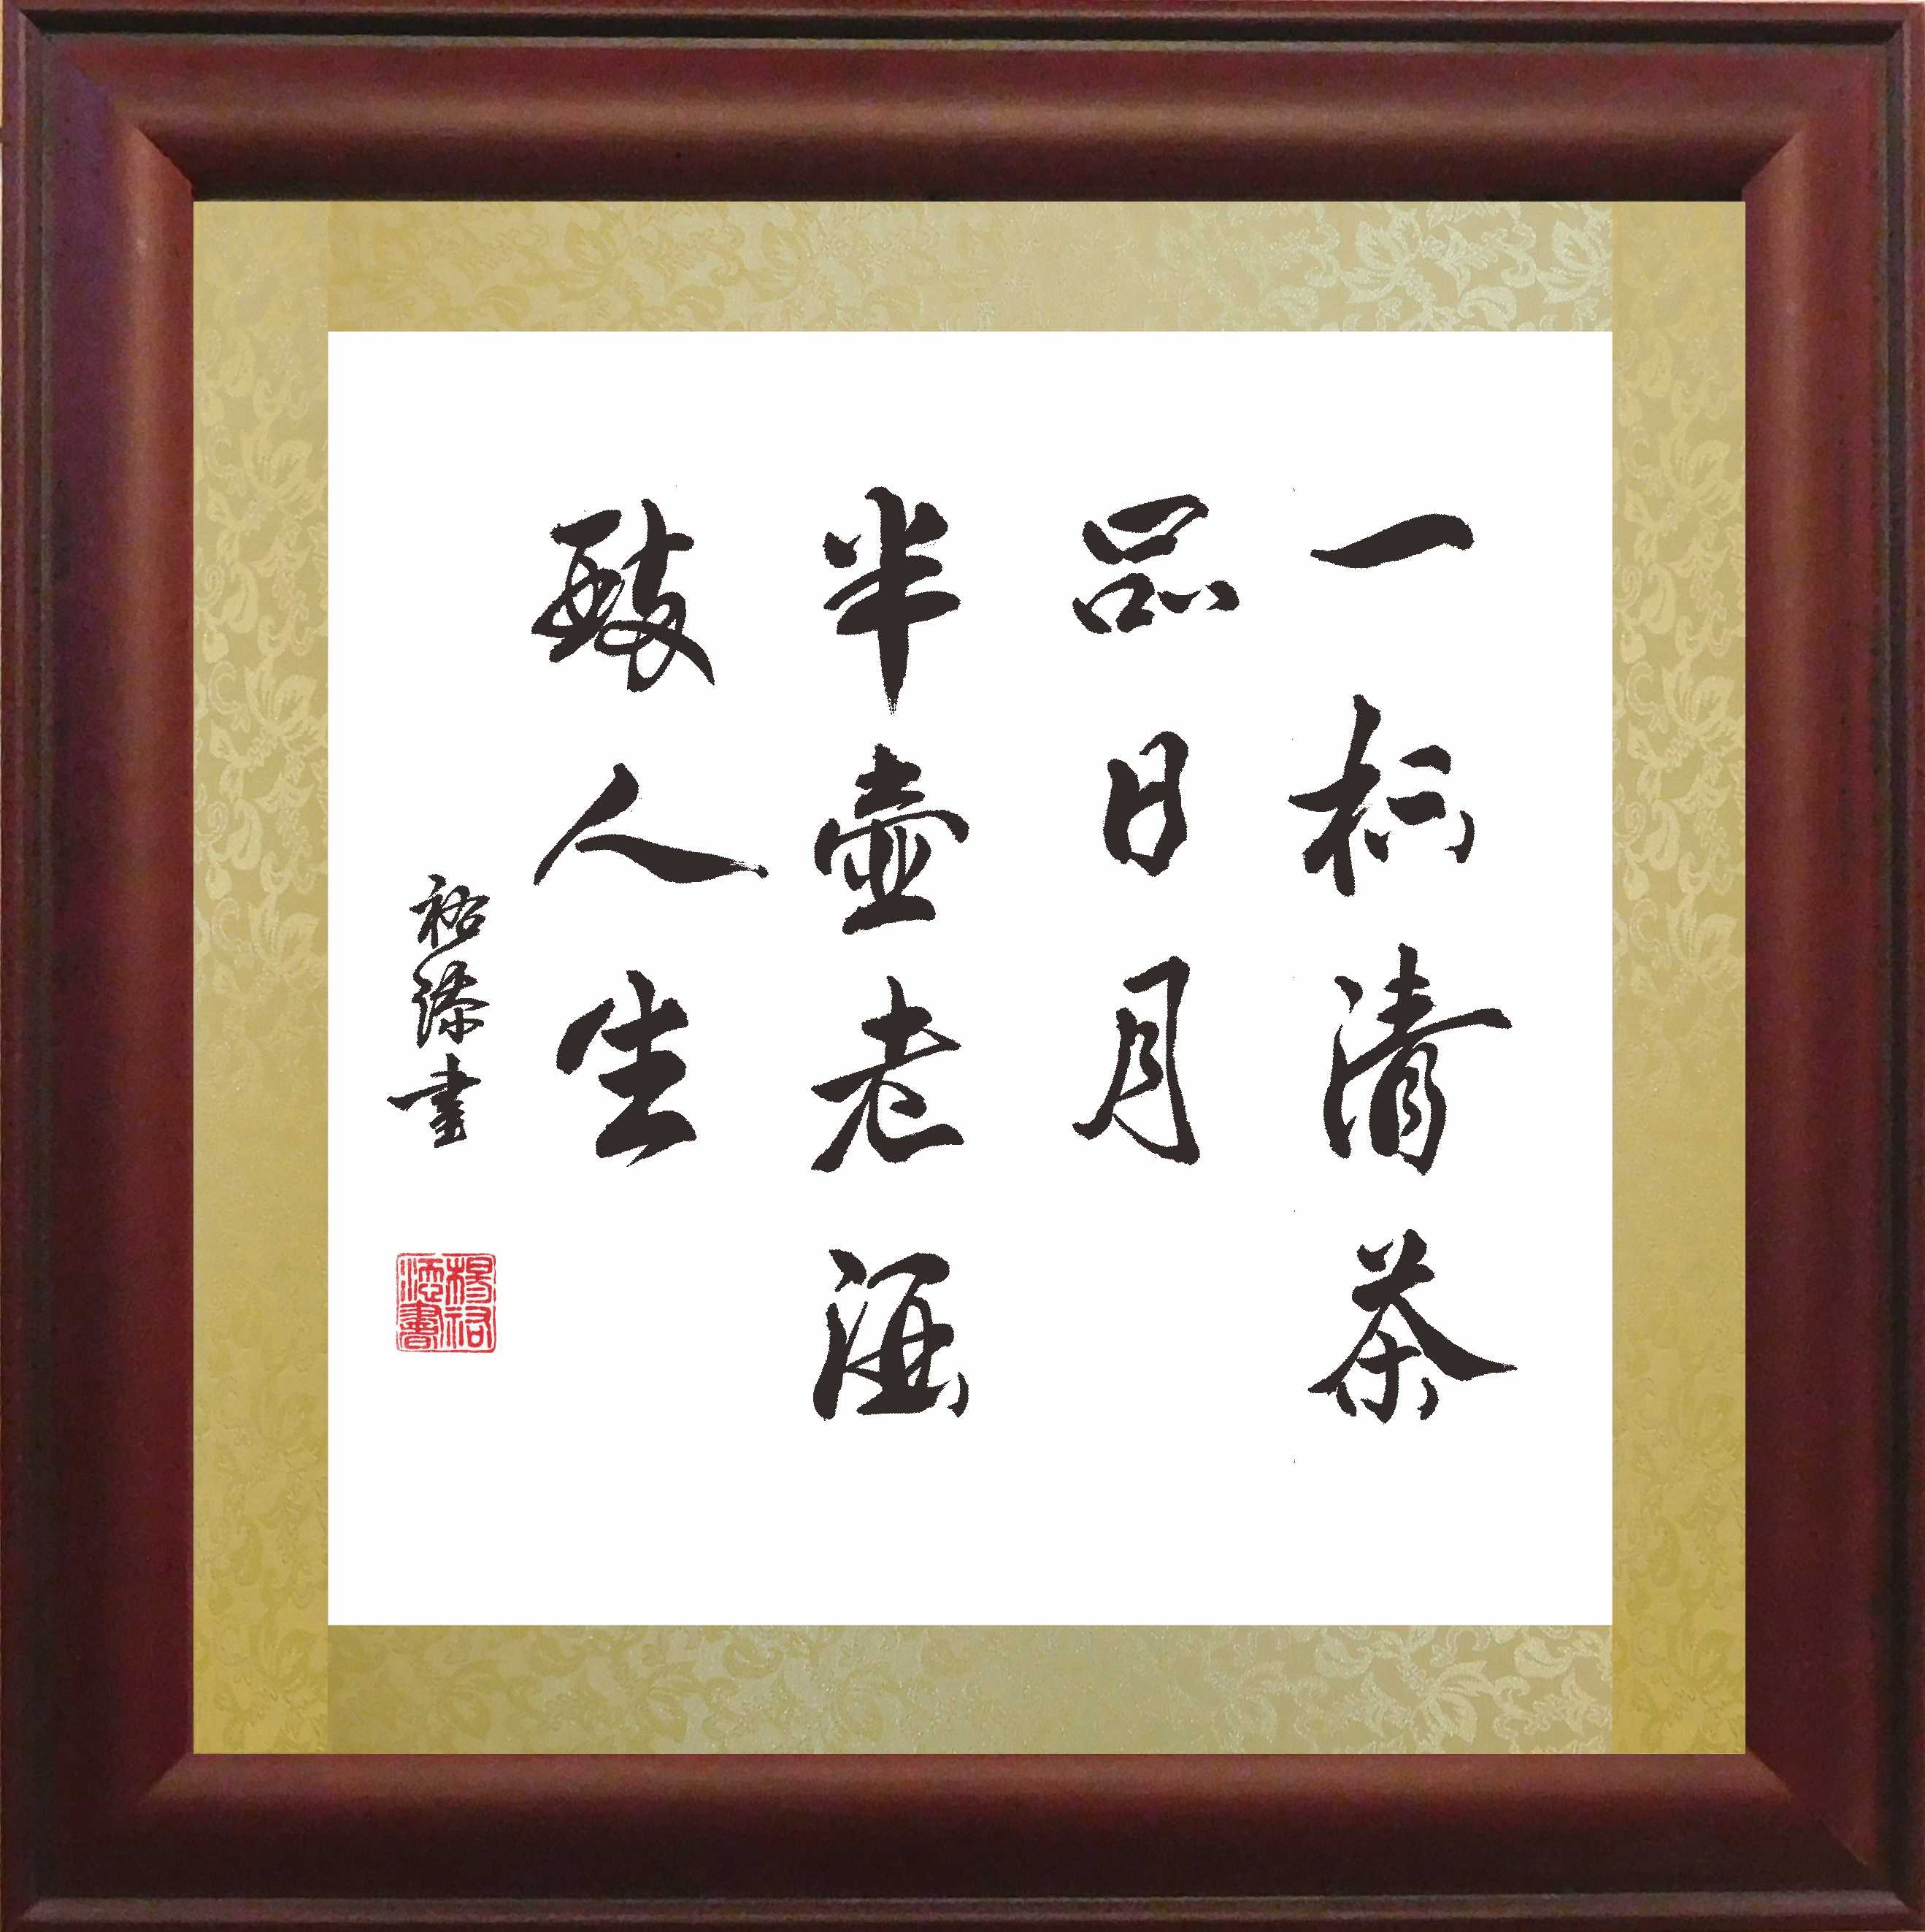 一杯清茶
品日月
半壺老酒
醉人生
裕添書
楊裕
添書